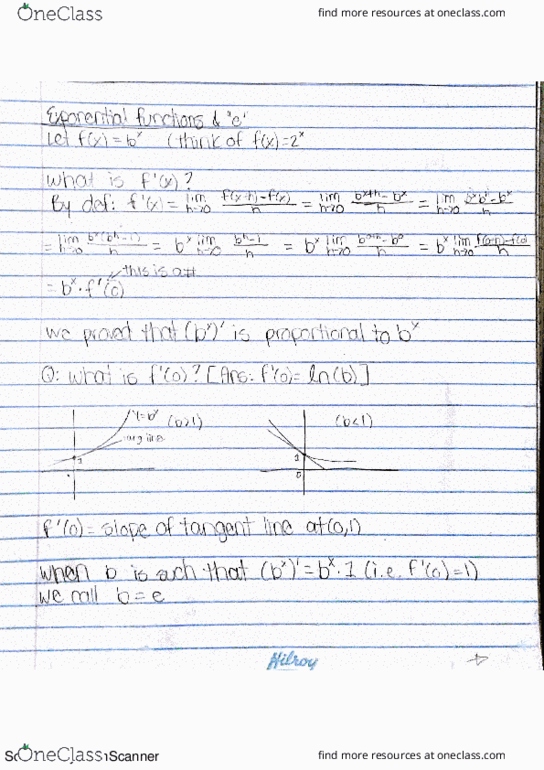 OneClass
find more resources at oneclass.com
Exponential functions & "e"
Let f(x) = b^x (think of f(x) = 2^x
what is f'(x)?
By def: f'(x) = lim h→0 f(x+h)-f(x)/h = lim h→0 b^x+h - b^x/h = lim h→0 b^x b^h - b^x/h
= lim h→0 b^x(b^h-1)/h = b^x lim h→0 b^h-1/h = b^x lim h→0 b^0+h - b^0/h = b^x lim h→0 f(0+h)-f(0)/h
this is a #
= b^x · f'(0)
we proved that (b^x)' is proportional to b^x
Q: what is f'(0)? [Ans: f'(0) = ln(b)]
(b>1)
(b<1)
1
1
0
f'(0) = slope of tangent line at (0,1)
when b is such that (b^x)' = b^x · 1 (i.e. f'(0)=1)
we call b = e
Hilroy
OneClass
Scanner
find more resources at oneclass.com